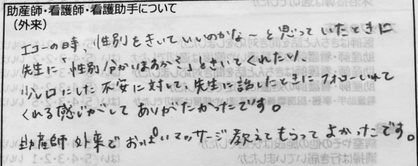 助産師・看護師・看護助手について
(外来)
エコーの時、性別をきいていいのかな～と思っていたときに
先生に「性別分かいはあが?」ときいてくれたり、
少し口にした不安に対して、先生に話したときにフォローいれて
くれる感じがしてありがたかったです。
助産師外来でおっぱいマッサージ教えてもらってよかったです。